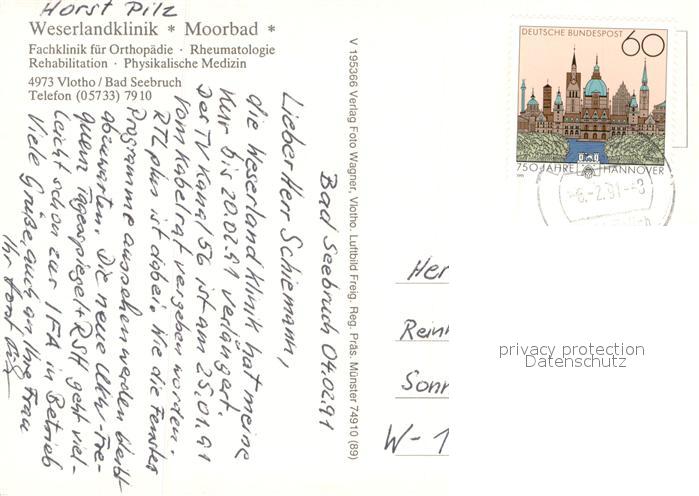 Horst Pilz
Weserlandklinik * Moorbad *
Fachklinik für Orthopädie · Rheumatologie
Rehabilitation · Physikalische Medizin
4973 Vlotho / Bad Seebruch
Telefon (05733) 7910
Bad Seebruch 04.02.91
Lieber Herr Schiemann,
die Weserlandklinik hat meine
Kur bis 20.02.91 verlängert.
Der TV Kanal 56 ist am 25.01.91
vom Kabelrat vergeben worden.
RTL plus ist dabei. Wie die Fenster
Programme aussehen werden bleibt
abzuwarten. Die neue UKW-Fre-
quen Tagesspiegel + RSH geht viel-
leicht schon zur IFA in Betrieb
Viele Grüße, auch an Ihre Frau
Ihr Horst Pilz
V 195366 Verlag Foto Wagner, Vlotho. Luftbild Freig. Reg. Präs. Münster 74910 (89)
DEUTSCHE BUNDESPOST 60
750 JAHRE HANNOVER
-6.-2.91--8
Her
Rein
Sonn
W-1
privacy protection
Datenschutz